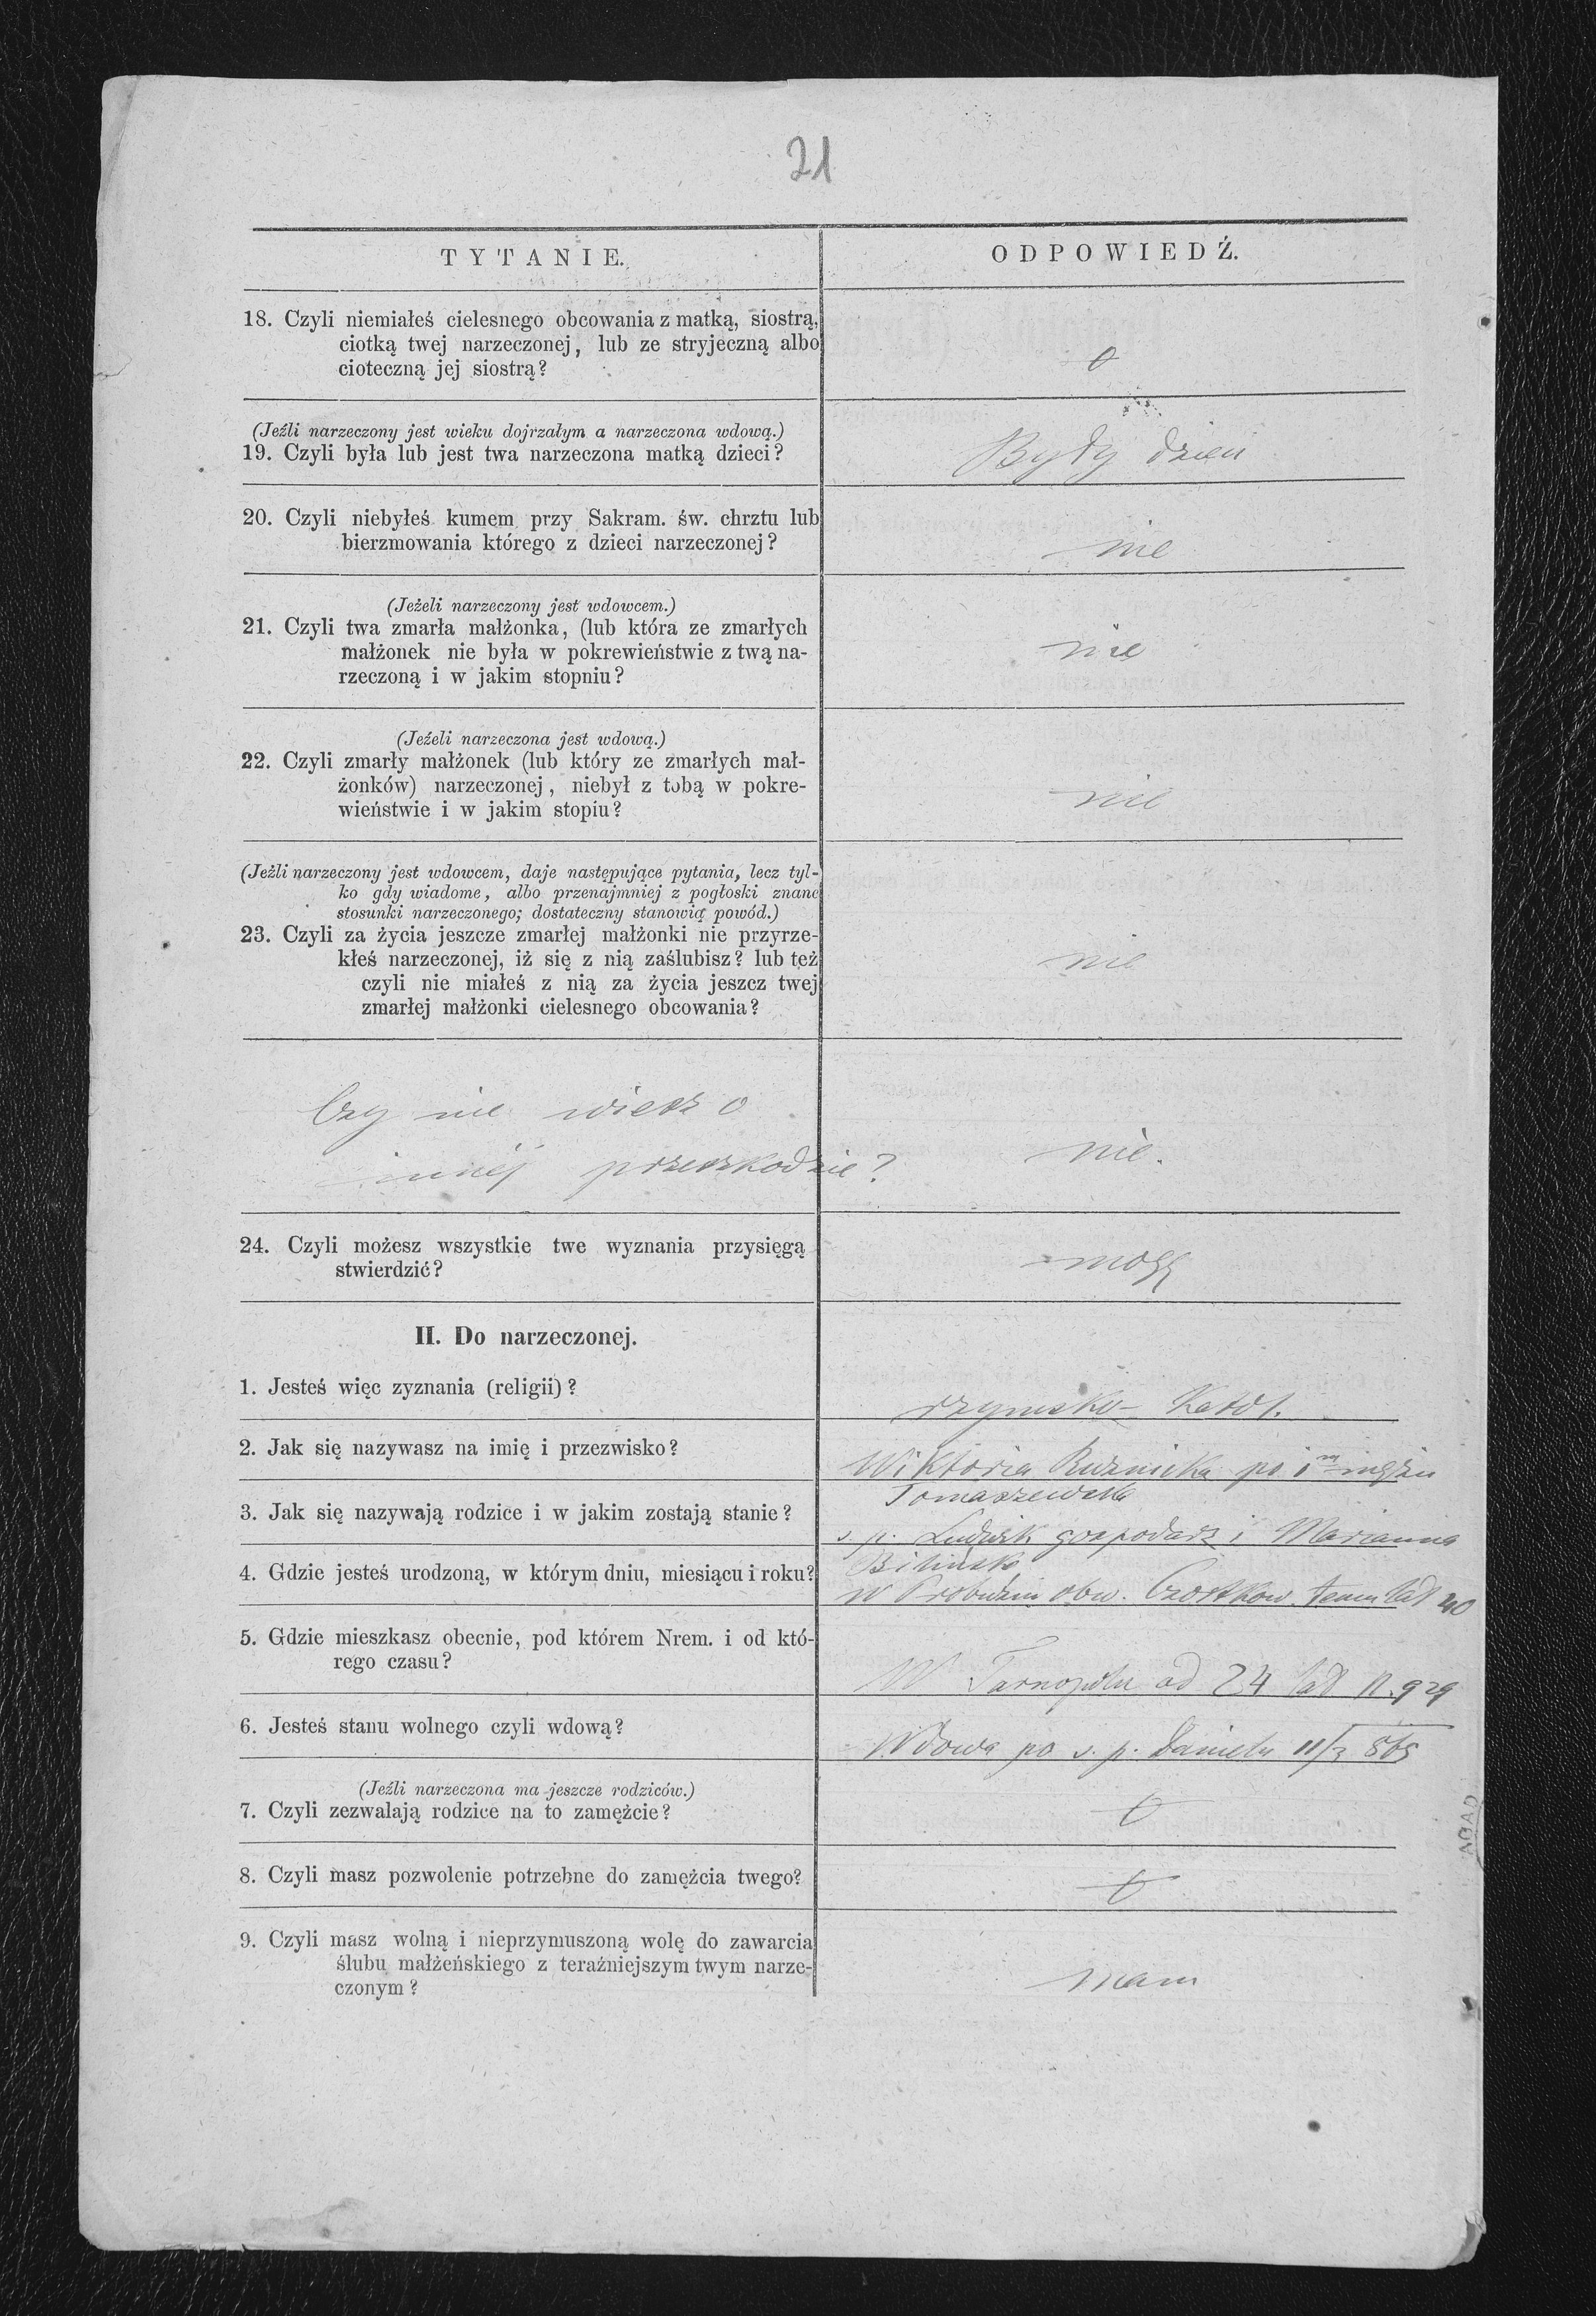 21
TYTANIE.
ODPOWIEDŹ.
18. Czyli niemiałeś cielesnego obcowania z matką, siostrą,
ciotką twej narzeczonej, lub ze stryjeczną albo
cioteczną jej siostrą?
0
(Jeźli narzeczony jest wieku dojrzałym a narzeczona wdową.)
19. Czyli była lub jest twa narzeczona matką dzieci?
Były dzieci
20. Czyli niebyłeś kumem przy Sakram. św. chrztu lub
bierzmowania którego z dzieci narzeczonej?
nie
(Jeżeli narzeczony jest wdowcem.)
21. Czyli twa zmarła małżonka, (lub która ze zmarłych
małżonek nie była w pokrewieństwie z twą na-
rzeczoną i w jakim stopniu?
nie
(Jeżeli narzeczona jest wdową.)
22. Czyli zmarły małżonek (lub który ze zmarłych mał-
żonków) narzeczonej, niebył z tobą w pokre-
wieństwie i w jakim stopiu?
nie
(Jeżli narzeczony jest wdowcem, daje następujące pytania, lecz tyl-
ko gdy wiadome, albo przenajmniej z pogłoski znane
stosunki narzeczonego; dostateczny stanowią powód.)
23. Czyli za życia jeszcze zmarłej małżonki nie przyrze-
kłeś narzeczonej, iż się z nią zaślubisz? lub też
czyli nie miałeś z nią za życia jeszcz twej
zmarłej małżonki cielesnego obcowania?
nie
Czy nie wiesz o
innéj przeszkodzie?
nie.
24. Czyli możesz wszystkie twe wyznania przysięgą
stwierdzić?
mogę
II. Do narzeczonej.
1. Jesteś więc zyznania (religii)?
rzymsko-Katol.
2. Jak się nazywasz na imię i przezwisko?
Wiktoria Ruznicka po 1m mężu
Tomaszewska
3. Jak się nazywają rodzice i w jakim zostają stanie?
s. p. Ludwik gospodarz i Marianna
Bilińska
4. Gdzie jesteś urodzoną, w którym dniu, miesiącu i roku?
w obw. Czortkow. temu lat 40
5. Gdzie mieszkasz obecnie, pod którem Nrem. i od któ-
rego czasu?
W Tarnopolu od 24 lat N. 929
6. Jesteś stanu wolnego czyli wdową?
Wdowa po s. p. Danielu 11/3 865
(Jeźli narzeczona ma jeszcze rodziców.)
7. Czyli zezwalają rodzice na to zamężcie?
0
8. Czyli masz pozwolenie potrzebne do zamężcia twego?
0
9. Czyli masz wolną i nieprzymuszoną wolę do zawarcia
ślubu małżeńskiego z teraźniejszym twym narze-
czonym?
mam
AGAD